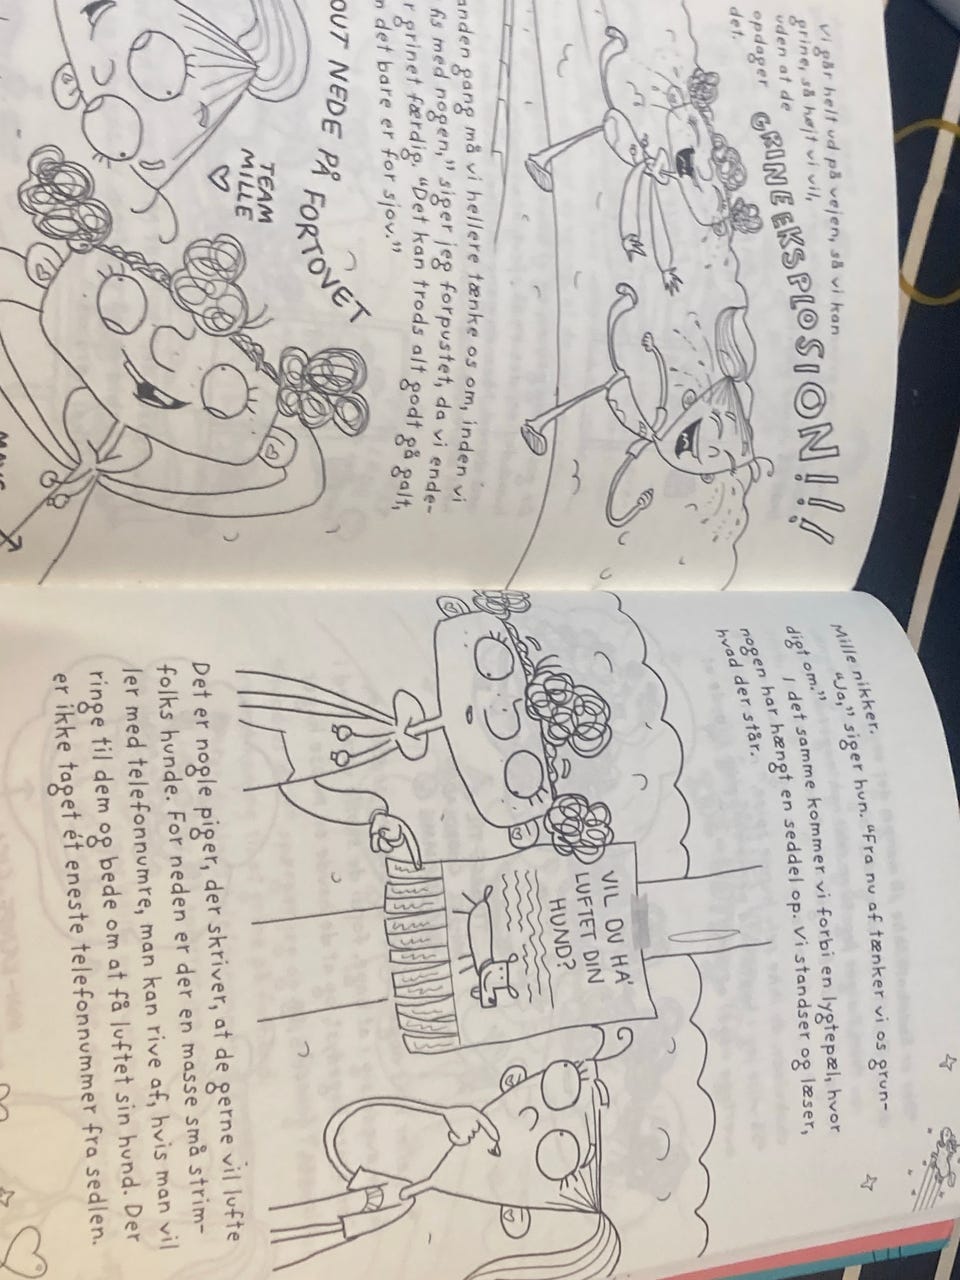 Vi går helt ud på vejen, så vi kan
grine, så højt vi vil,
uden at de
opdager
det.
GRINEEKSPLOSION!!!
anden gang må vi hellere tænke os om, inden vi
fis med nogen," siger jeg forpustet, da vi ende-
grinet færdig. "Det kan trods alt godt gå galt,
det bare er for sjov."
OUT NEDE PÅ FORTOVET
TEAM
MILLE
Mille nikker.
"Ja," siger hun. "Fra nu af tænker vi os grun-
digt om."
I det samme kommer vi forbi en lygtepæl, hvor
nogen har hængt en seddel op. Vi standser og læser,
hvad der står.
VIL DU HA'
LUFTET DIN
HUND?
Det er nogle piger, der skriver, at de gerne vil lufte
folks hunde. For neden er der en masse små strim-
ler med telefonnumre, man kan rive af, hvis man vil
ringe til dem og bede om at få luftet sin hund. Der
er ikke taget ét eneste telefonnummer fra sedlen.